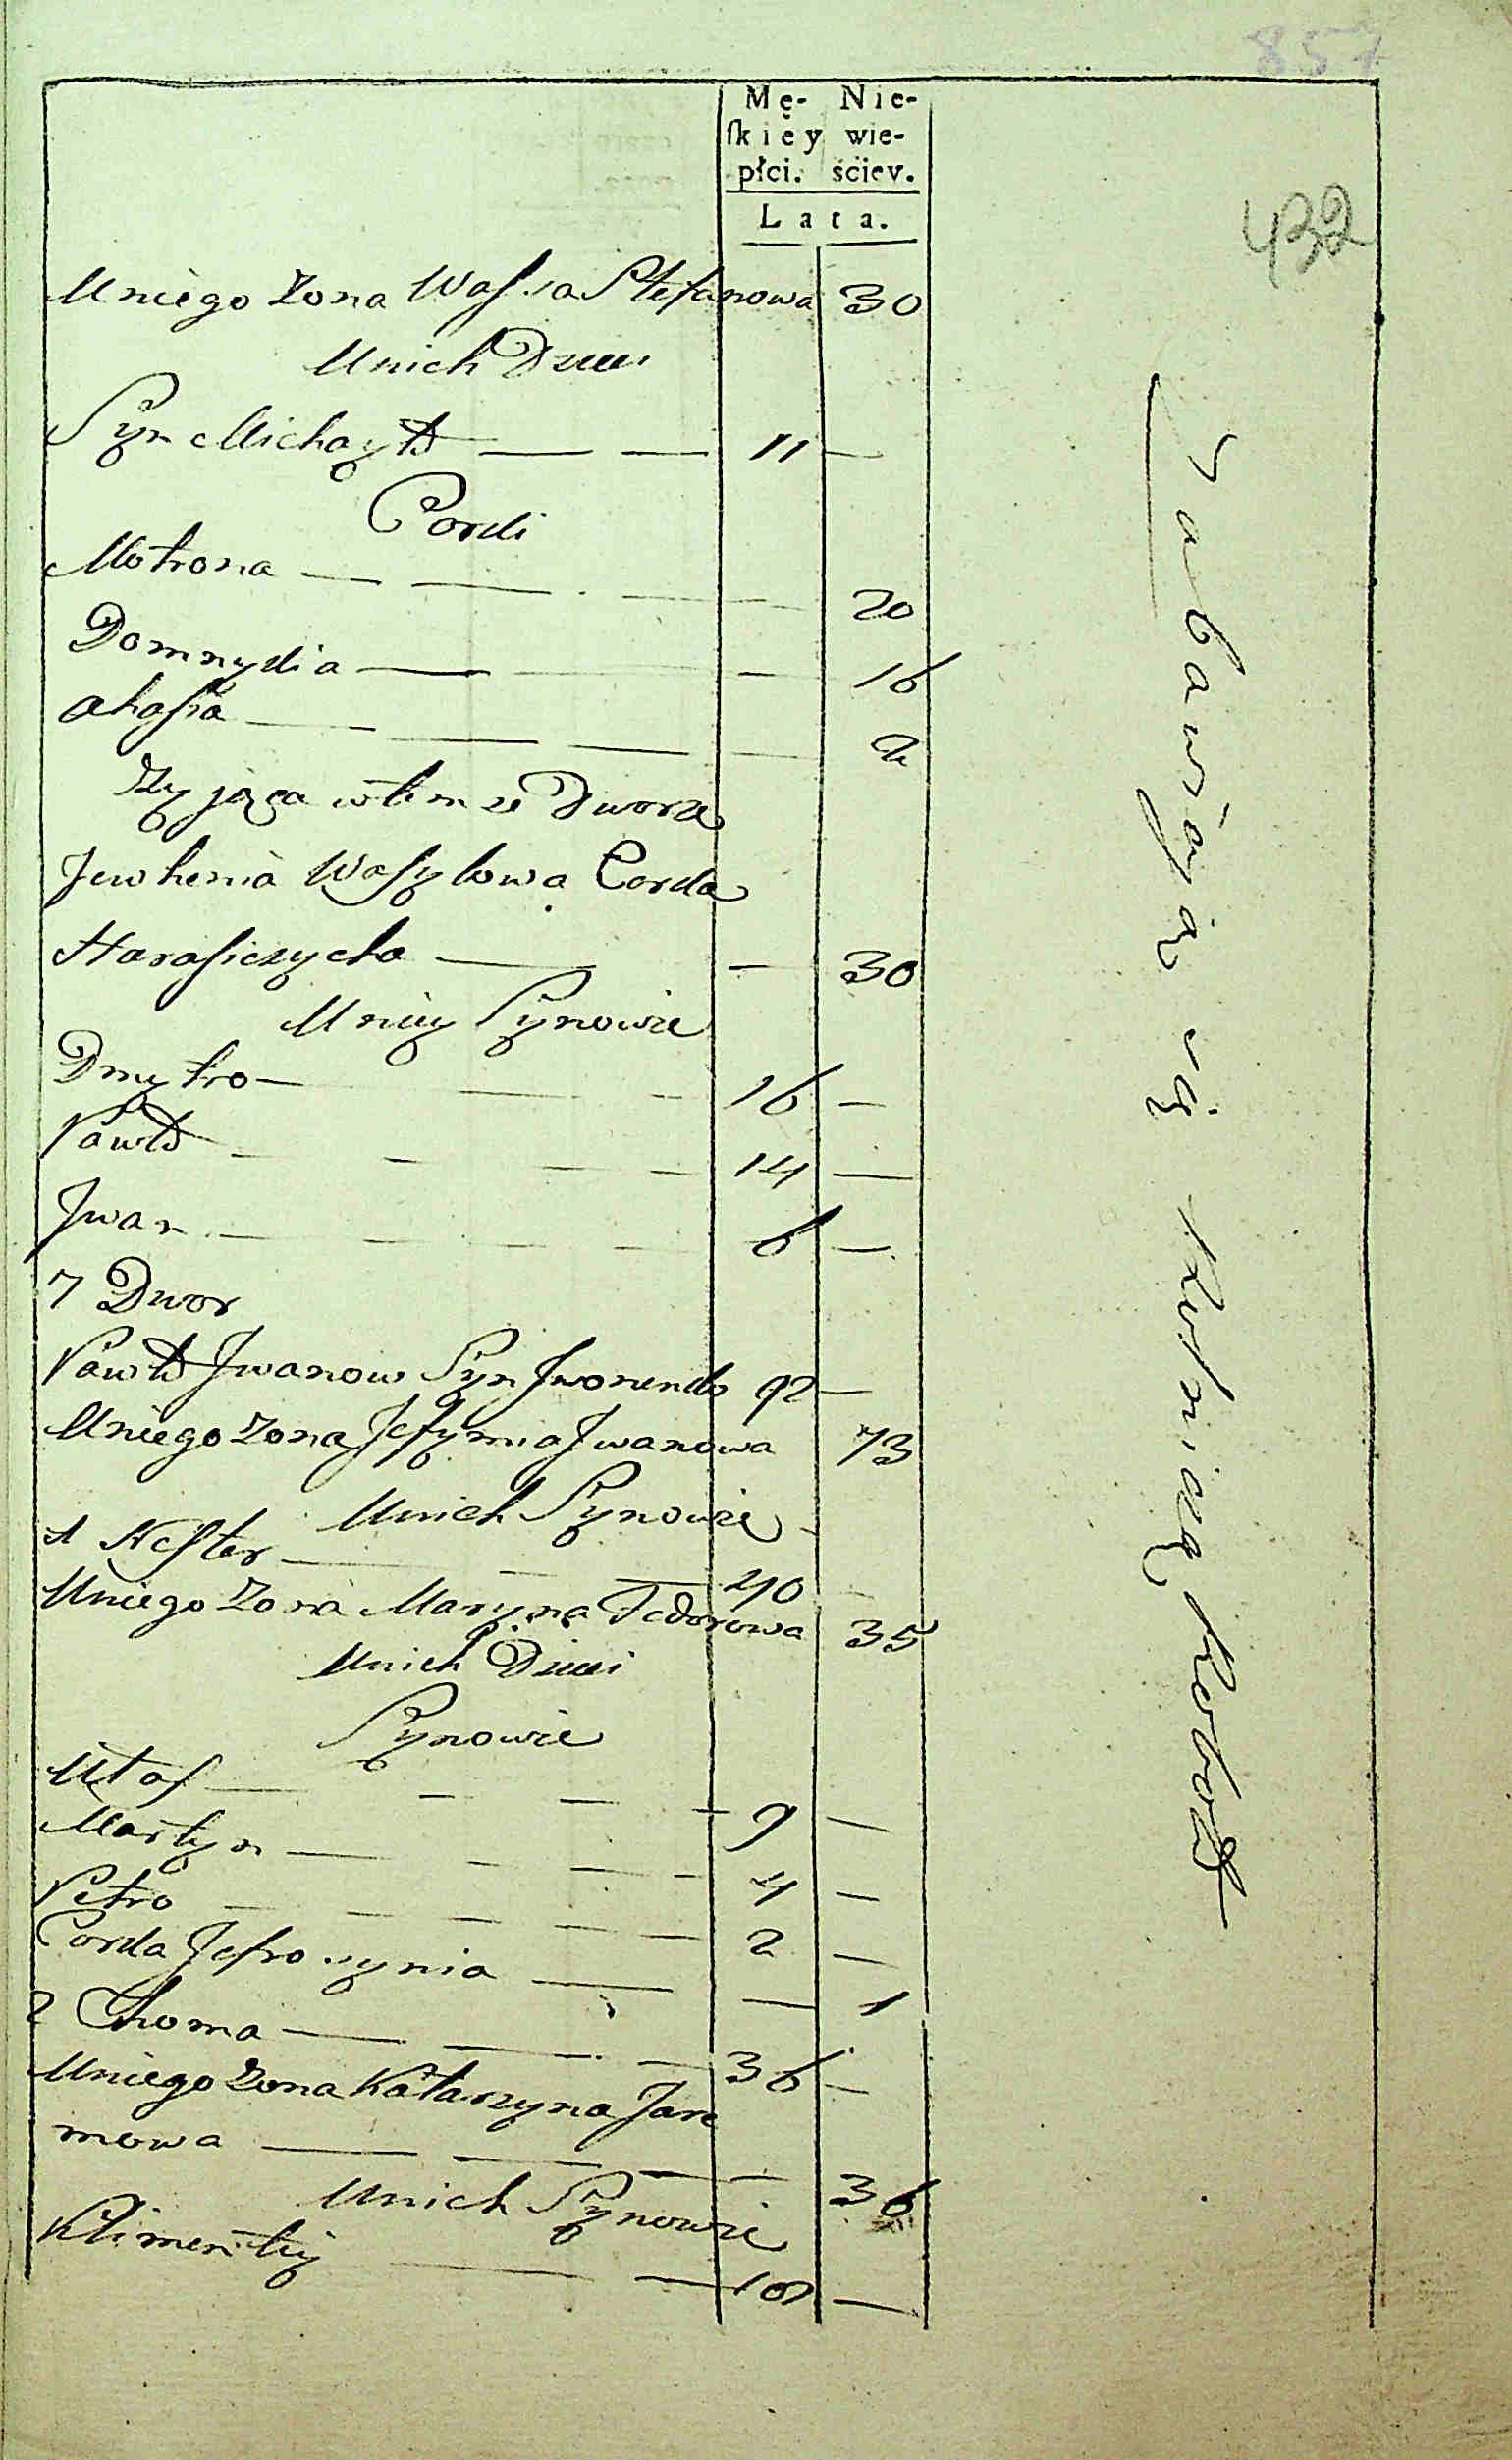 857
Mę- Nie-
ſkiéy wie-
płci. ściey.
Lata.
432
Uniego Zona Wassa Stefanowa 30
Unich Dzieci
Syn Michayło — — 11 —
Cordi
Motrona — — — — 20
Domnydia — — — 16
Ahafia — — — — 2
Zyjąca w temze Dworze
Jewhenia Wasylowa Corda
Harasiczycha — — 30
Uniey Synowie
Dmytro — — — 16 —
Pawło — — — — 14 —
Jwan — — — — 6 —
7 Dwor
Pawło Jwanow Syn Jwonenko 92 —
Uniego Zona Jefymia Jwanowa 73
Unich Synowie
1 Nester — — — 40 —
Uniego Zona Maryna Fedorowa 35
Unich Dzieci
Synowie
Ułas — — — — 9 —
Martyn — — — — 4 —
Petro — — — — — 2 —
Corda Jefrosynia — — 1
2 Choma — — — 36 —
Uniego Zona Katarzyna Jare
mowa — — — — 36
Unich Synowie
Klimentiy — — 10 —
Zabawiaią się Rolniczą Robotą